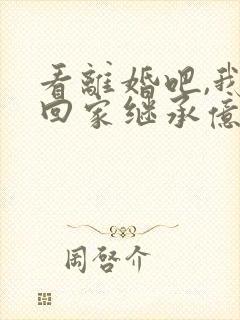 看離婚吧,我
回家继承億
周啓介